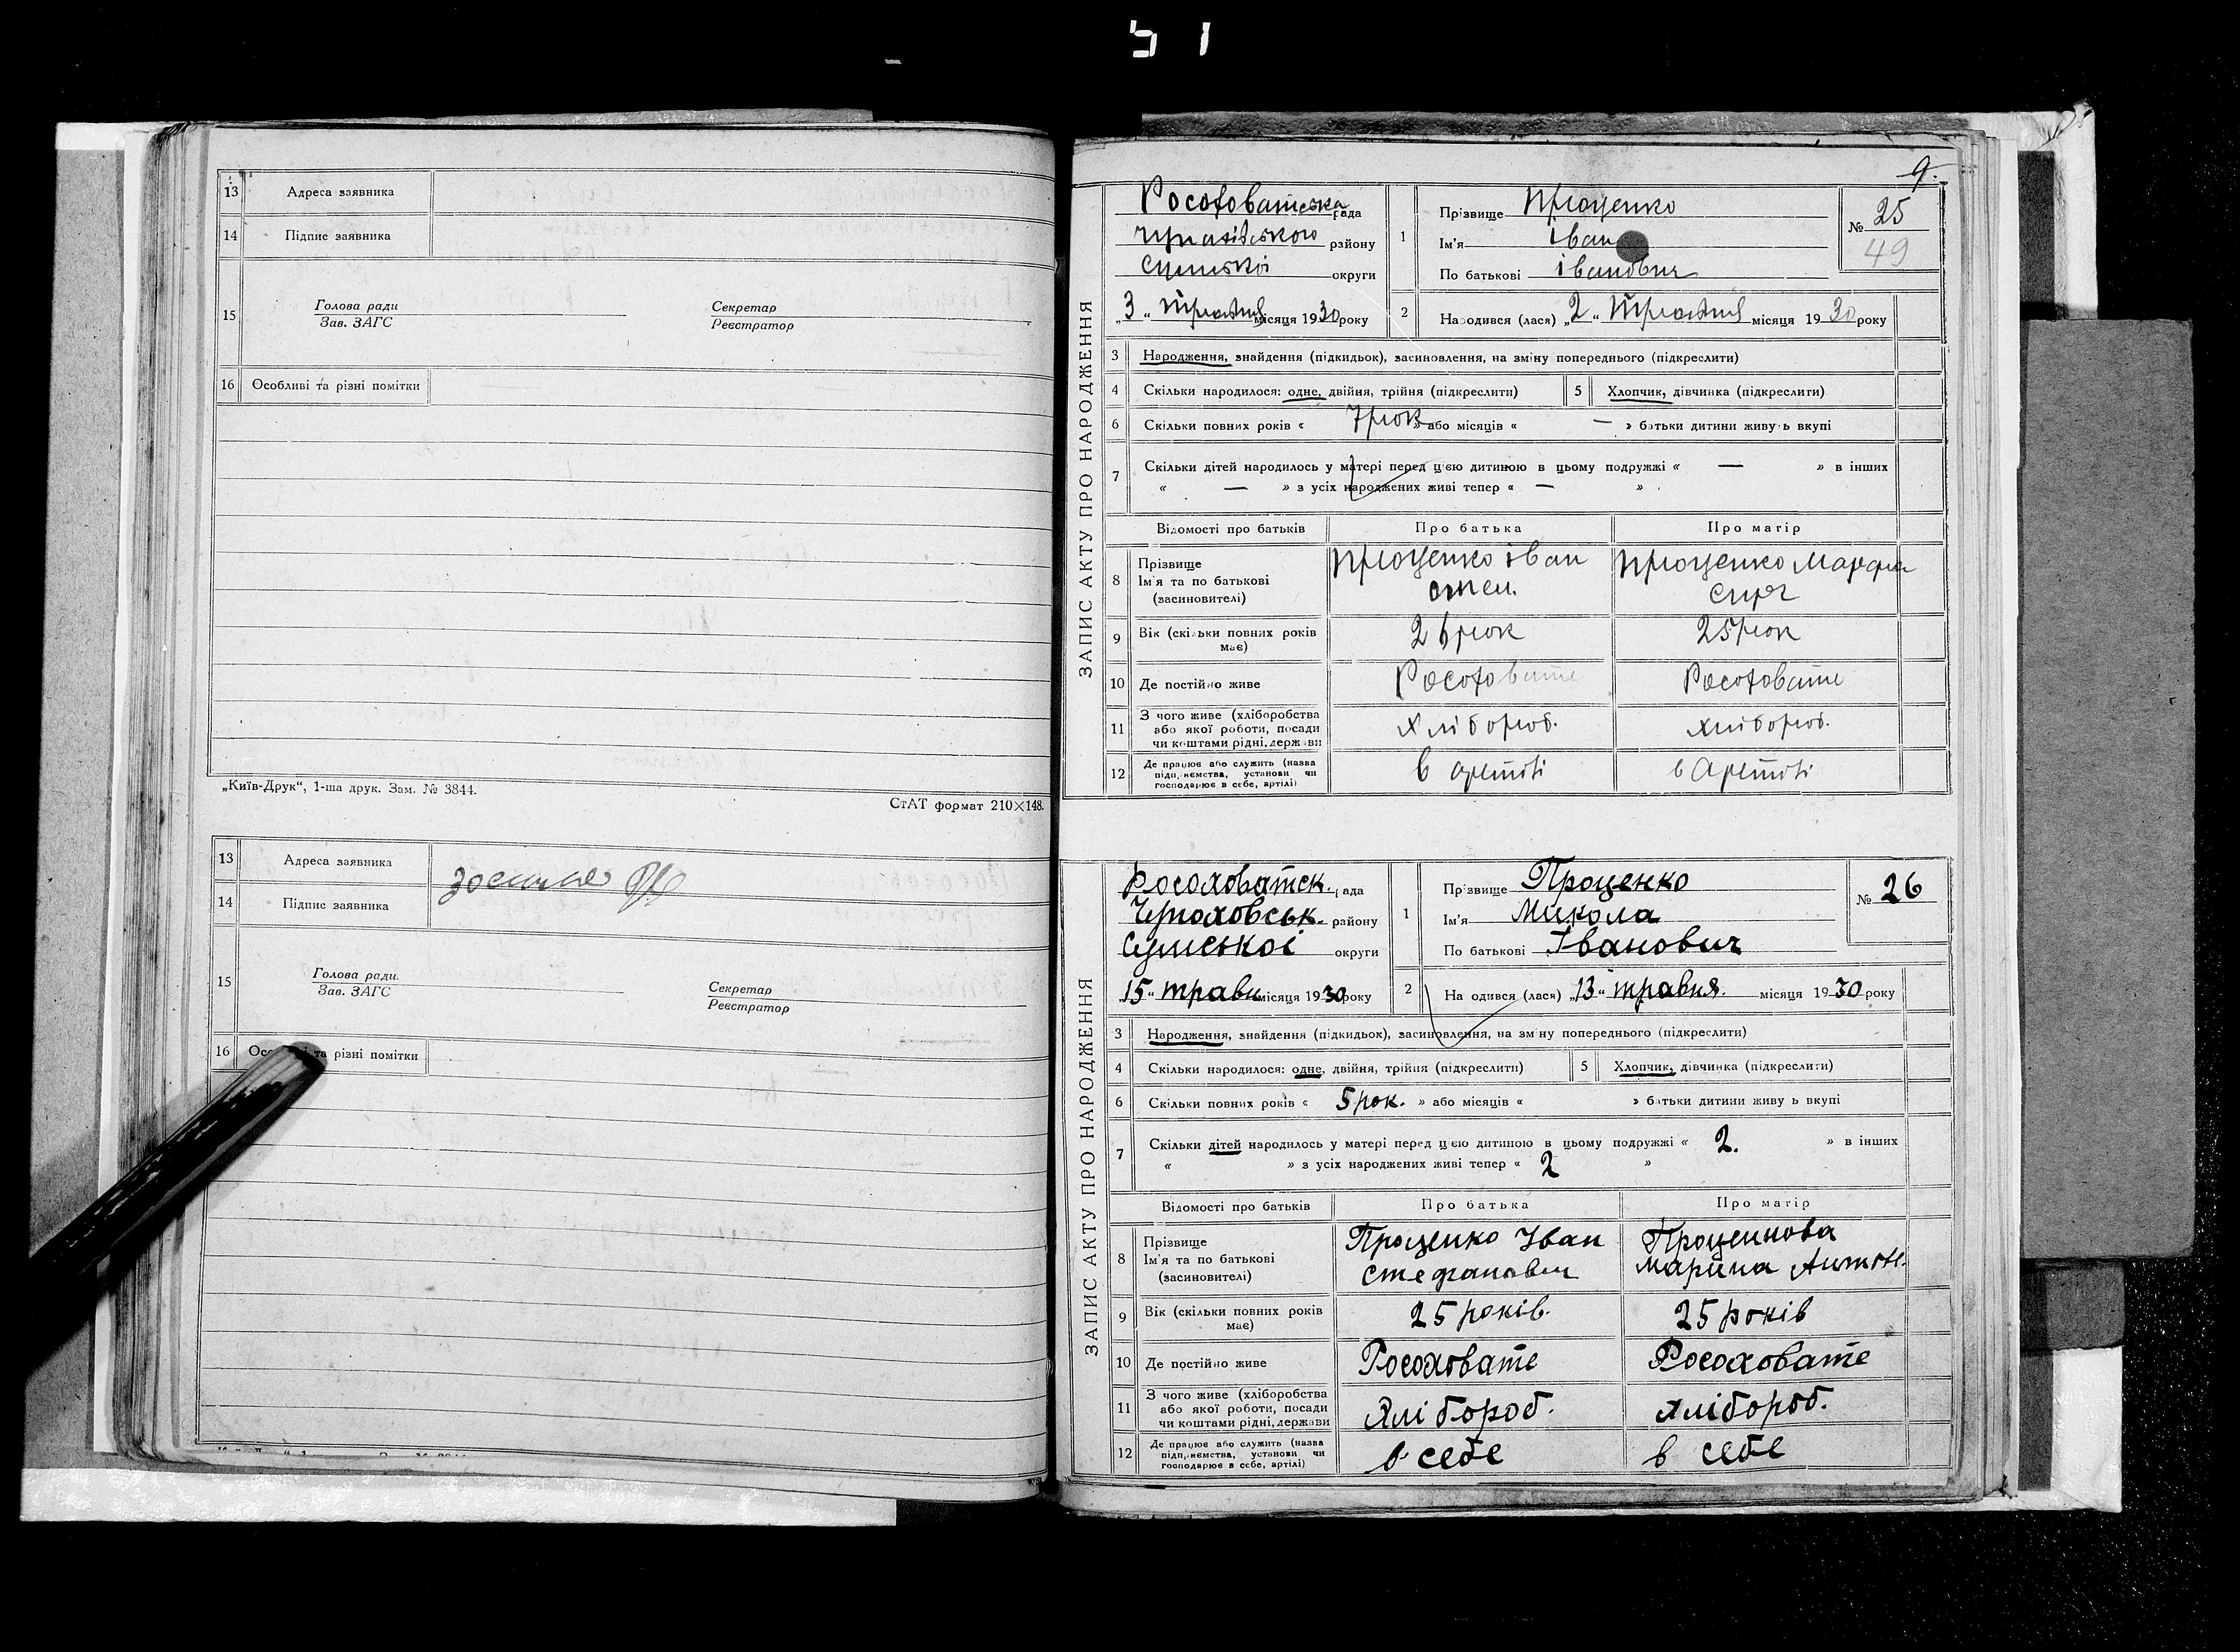 51
13 Адреса заявника
14 Підпис заявника
15 Голова ради
Зав. ЗАГС
Секретар
Реєстратор
16 Особливі та різні помітки
„Київ-Друк“, 1-ша друк. Зам. № 3844.
СтАТ формат 210×148.
13 Адреса заявника
14 Підпис заявника
15 Голова ради.
Зав. ЗАГС
Секретар
Реєстратор
16 та різні помітки
9.
ЗАПИС АКТУ ПРО НАРОДЖЕННЯ
Росоховатська рада
району
Сумської округи
„3“ травня місяця 1930 року
1 Прізвище Проценко
Ім'я Іван
По батькові Іванович
№ 25
49
2 Народився (лася) „2“ травня місяця 1930 року
3 Народження, знайдення (підкидьок), засиновлення, на зміну попереднього (підкреслити)
4 Скільки народилося: одне, двійня, трійня (підкреслити)
5 Хлопчик, дівчинка (підкреслити)
6 Скільки повних років « 7 рок » або місяців « — » батьки дитини живуть вкупі
7 Скільки дітей народилось у матері перед цією дитиною в цьому подружжі « — » в інших
« — » з усіх народжених живі тепер « — »
Відомості про батьків Про батька Про матір
8 Прізвище
Ім'я та по батькові
(засиновителі)
Проценко Іван
Степ.
Проценко Марфа
9 Вік (скільки повних років
має)
26 рок
25 рок
10 Де постійно живе Росоховате Росоховате
11 З чого живе (хліборобства
або якої роботи, посади
чи коштами рідні, держави
Хлібороб. хлібороб.
12 Де працює або служить (назва
підприємства, установи чи
господарює в себе, артілі)
в артілі в Артілі
ЗАПИС АКТУ ПРО НАРОДЖЕННЯ
Росоховатськ. рада
району
Сумської округи
„15“ травн місяця 1930 року
1 Прізвище Проценко
Ім'я Микола
По батькові Іванович
№ 26
2 Народився (лася) „13“ травня. місяця 1930 року
3 Народження, знайдення (підкидьок), засиновлення, на зміну попереднього (підкреслити)
4 Скільки народилося: одне, двійня, трійня (підкреслити)
5 Хлопчик, дівчинка (підкреслити)
6 Скільки повних років « 5 рок. » або місяців « » батьки дитини живуть вкупі
7 Скільки дітей народилось у матері перед цією дитиною в цьому подружжі « 2. » в інших
« » з усіх народжених живі тепер « 2 »
Відомості про батьків Про батька Про матір
8 Прізвище
Ім'я та по батькові
(засиновителі)
Проценко Іван
Стефанович
Проценкова
Марина Антон.
9 Вік (скільки повних років
має)
25 років.
25 років
10 Де постійно живе Росоховате Росоховате
11 З чого живе (хліборобства
або якої роботи, посади
чи коштами рідні, держави
Хлібороб. хлібороб.
12 Де працює або служить (назва
підприємства, установи чи
господарює в себе, артілі)
в себе в себе